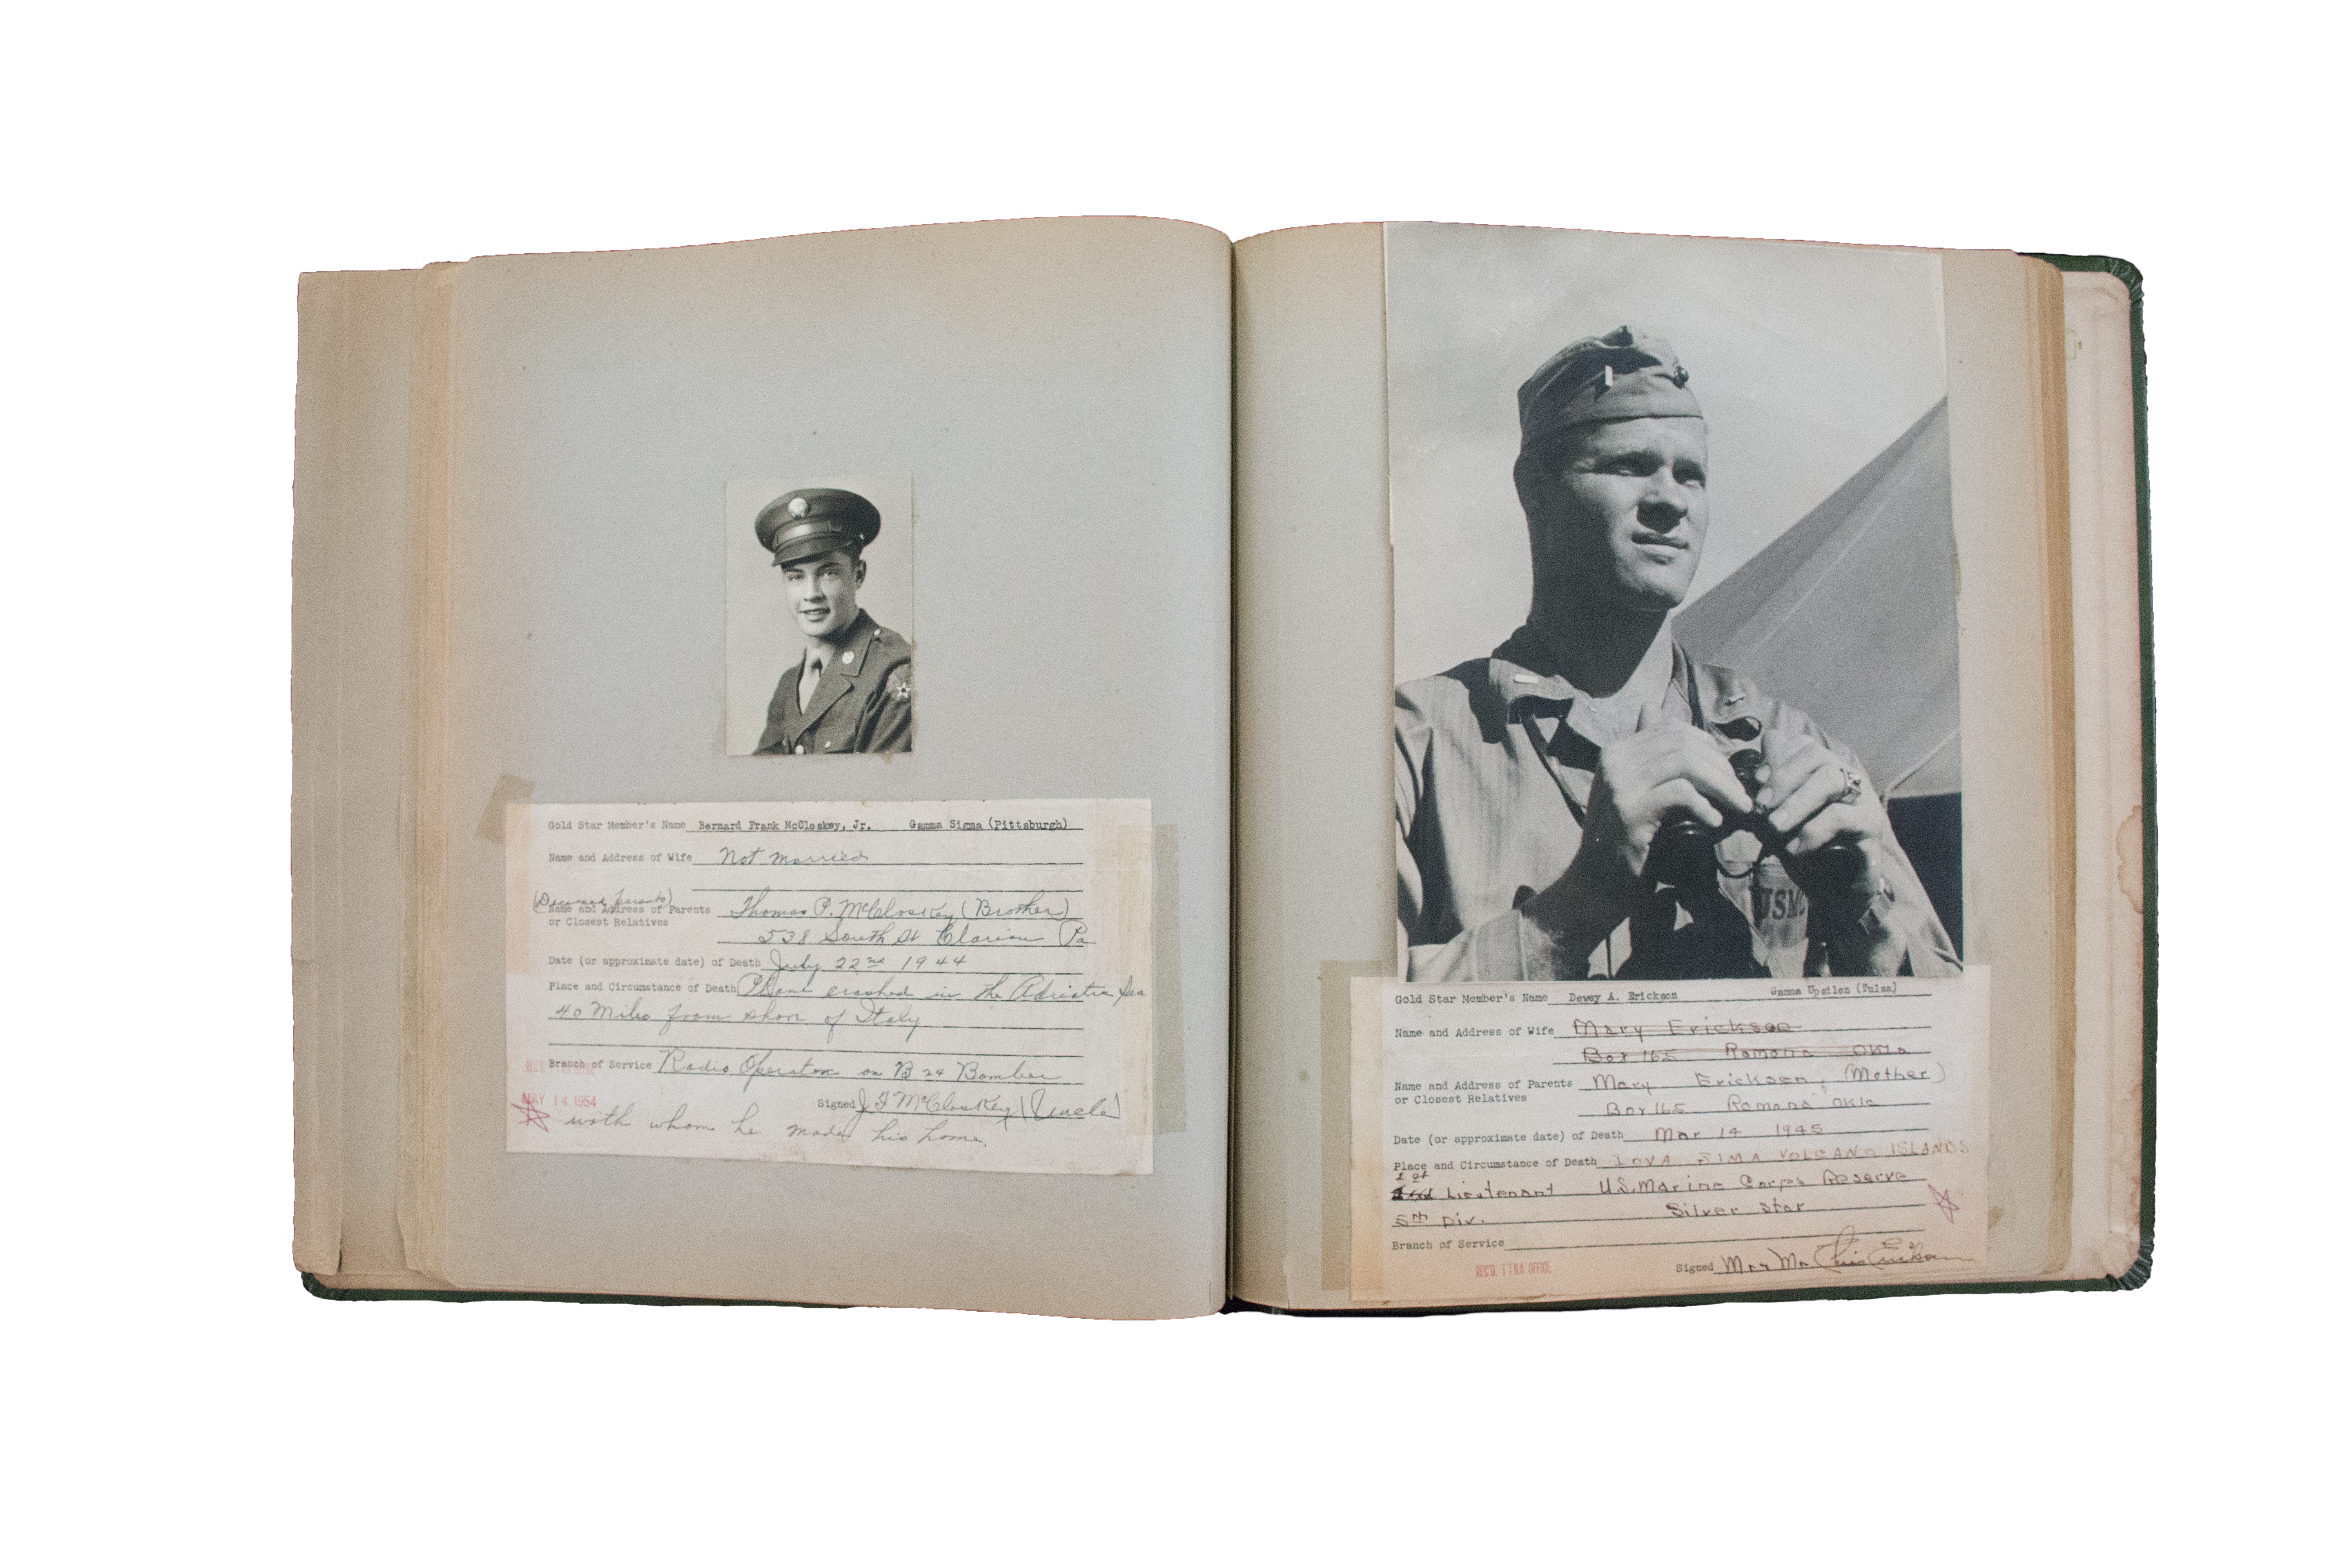 Gold Star Member's Name Bernard Frank McCloskey, Jr. Gamma Sigma (Pittsburgh)
Name and Address of Wife Not married
(Deceased parents)
Name and Address of Parents Thomas P. McCloskey (Brother)
or Closest Relatives
538 South St Clarion Pa
Date (or approximate date) of Death July 22nd 1944
Place and Circumstance of Death Plane crashed in the Adriatic Sea
40 Miles from shore of Italy
Branch of Service Radio Operator on B 24 Bomber
MAY 14 1954
Signed J F McCloskey (Uncle)
with whom he made his home.
USMC
Gold Star Member's Name Dewey A. Erickson Gamma Upsilon (Tulsa)
Name and Address of Wife Mary Erickson
Box 165 Ramona Okla
Name and Address of Parents Mary Erickson, (Mother)
or Closest Relatives
Box 165 Ramona Okla
Date (or approximate date) of Death Mar 14 1945
Place and Circumstance of Death IOWA JIMA VOLCANO ISLANDS
1st
Lieutenant U.S. Marine Corps Reserve
5th Div. Silver Star
Branch of Service
REC'D. OFFICE
Signed